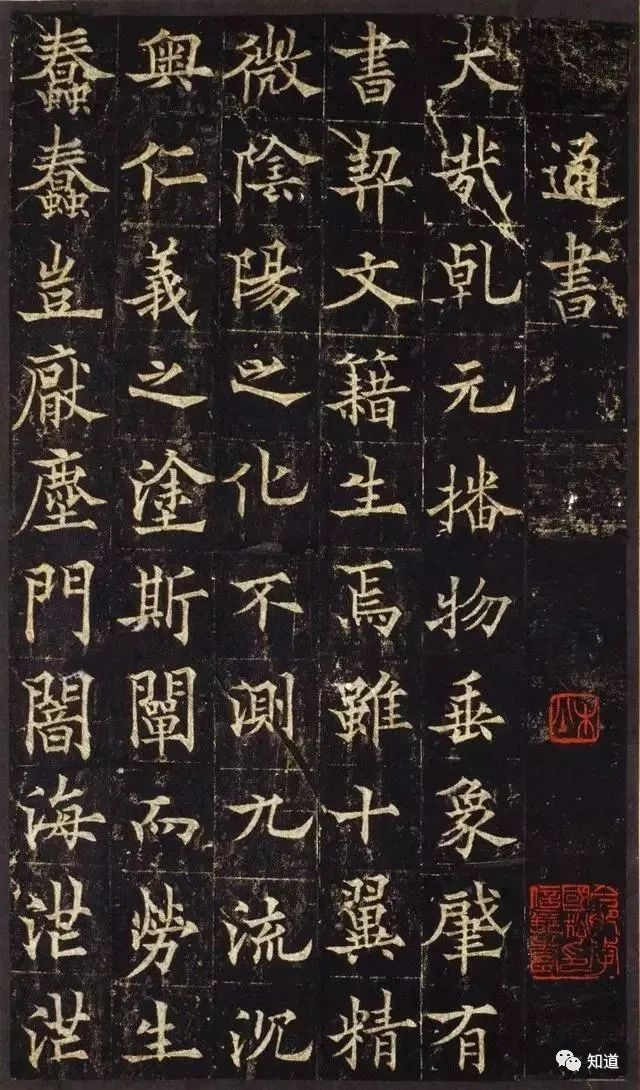 通書
大哉乹元播物垂象肇有
書契文籍生焉雖十翼精
微陰陽之化不測九流沉
奧仁義之塗斯闡而勞生
蠢蠢豈厭塵門闇海茫茫
知道